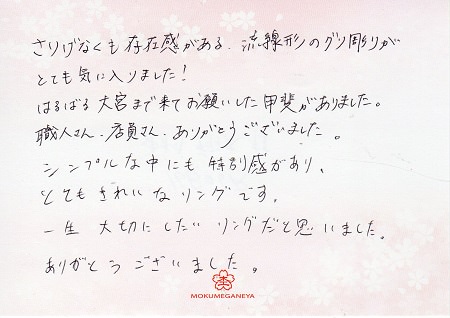 さりげなくも存在感がある、流線形のグリ彫りが
とても気に入りました！
はるばる大宮まで来てお願いした甲斐がありました。
職人さん、店員さん、ありがとうございました。
シンプルな中にも特別感があり、
とてもきれいなリングです。
一生大切にしたいリングだと思いました。
ありがとうございました。
MOKUMEGANEYA